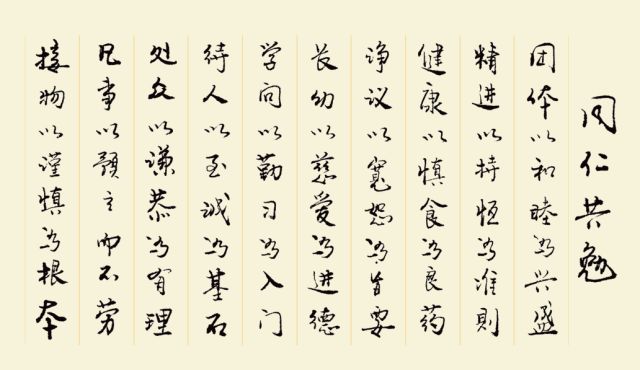 同仁共勉
团体以和睦为兴盛
精进以持恒为准則
健康以慎食为良药
诤议以寬恕为旨要
长幼以慈爱为进德
学问以勤习为入门
待人以至诚为基石
处众以谦恭为有理
凡事以預立而不劳
接物以谨慎为根本